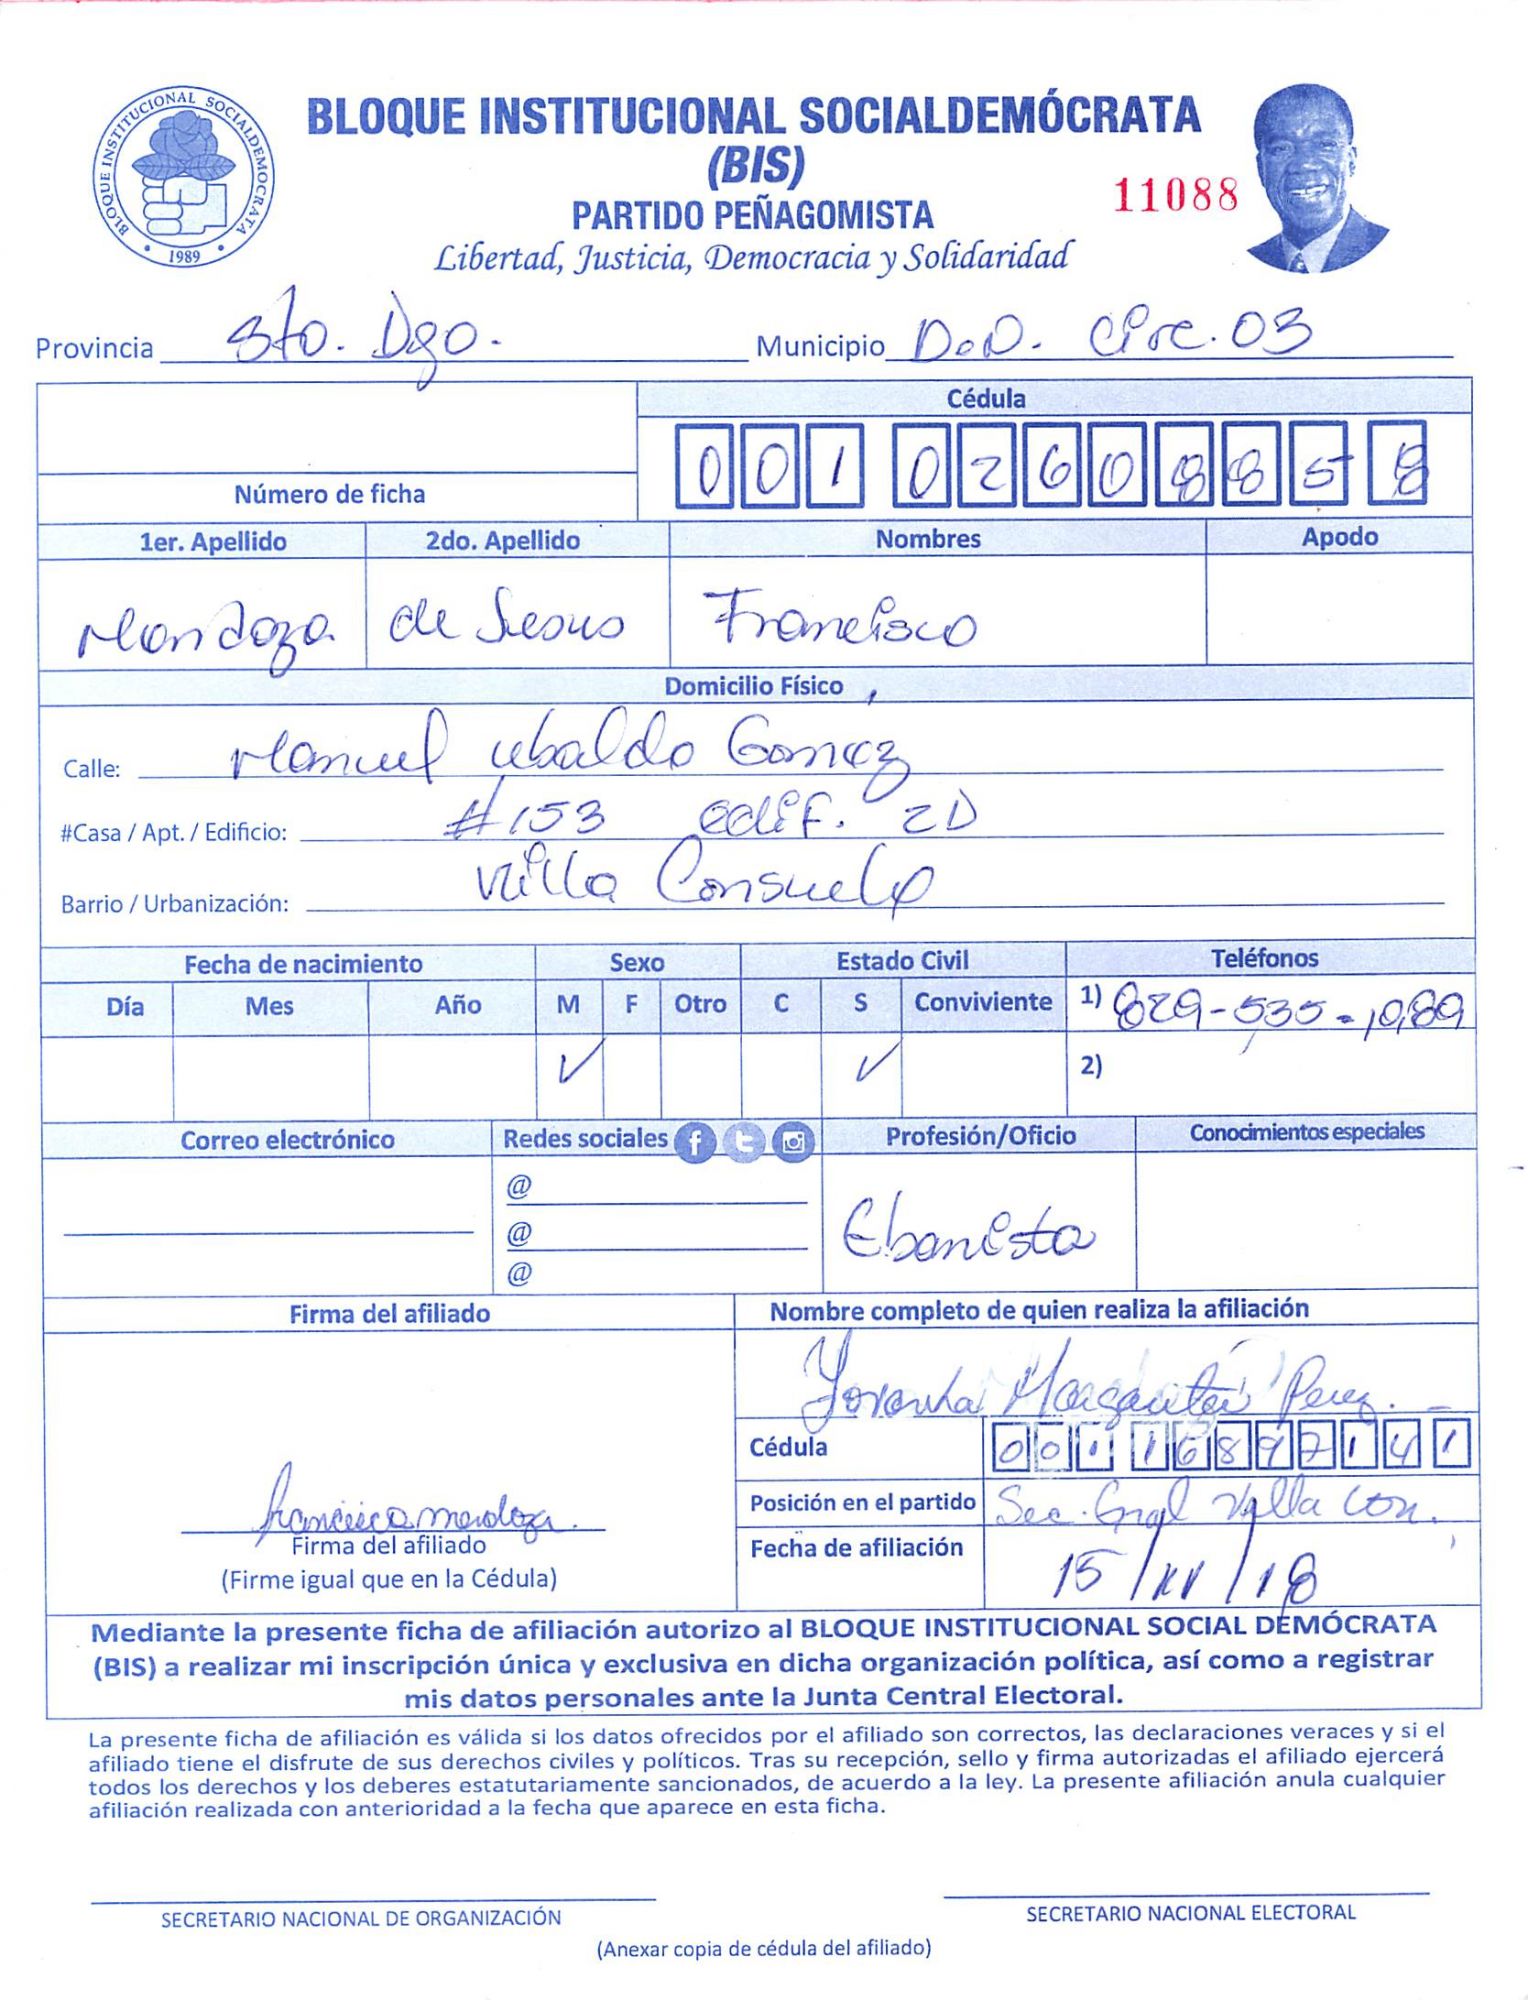 BLOQUE INSTITUCIONAL SOCIALDEMÓCRATA
(BIS)
PARTIDO PEÑAGOMISTA
11088
Libertad, Justicia, Democracia y Solidaridad
BLOQUE INSTITUCIONAL SOCIALDEMOCRATA
1989
Provincia Sto. Dgo. Municipio D.D. Circ. 03
Cédula
001 0260885 8
Número de ficha
1er. Apellido 2do. Apellido Nombres Apodo
Mendoza de Jesus Francisco
Domicilio Físico
Calle: Manuel Ubaldo Gomez
#Casa / Apt. / Edificio: #153 edif. 2D
Barrio / Urbanización: Villa Consuelo
Fecha de nacimiento Sexo Estado Civil Teléfonos
Día Mes Año M F Otro C S Conviviente 1) 829-535-1089
✓ ✓ 2)
Correo electrónico Redes sociales Profesión/Oficio Conocimientos especiales
@
@
@
Ebanista
Firma del afiliado Nombre completo de quien realiza la afiliación
Margarita Perez.
Cédula 001 1689714 1
Posición en el partido Sec. Gral Villa Con.
francisco mendoza
Firma del afiliado
(Firme igual que en la Cédula)
Fecha de afiliación 15/ /18
Mediante la presente ficha de afiliación autorizo al BLOQUE INSTITUCIONAL SOCIAL DEMÓCRATA
(BIS) a realizar mi inscripción única y exclusiva en dicha organización política, así como a registrar
mis datos personales ante la Junta Central Electoral.
La presente ficha de afiliación es válida si los datos ofrecidos por el afiliado son correctos, las declaraciones veraces y si el
afiliado tiene el disfrute de sus derechos civiles y políticos. Tras su recepción, sello y firma autorizadas el afiliado ejercerá
todos los derechos y los deberes estatutariamente sancionados, de acuerdo a la ley. La presente afiliación anula cualquier
afiliación realizada con anterioridad a la fecha que aparece en esta ficha.
SECRETARIO NACIONAL DE ORGANIZACIÓN SECRETARIO NACIONAL ELECTORAL
(Anexar copia de cédula del afiliado)